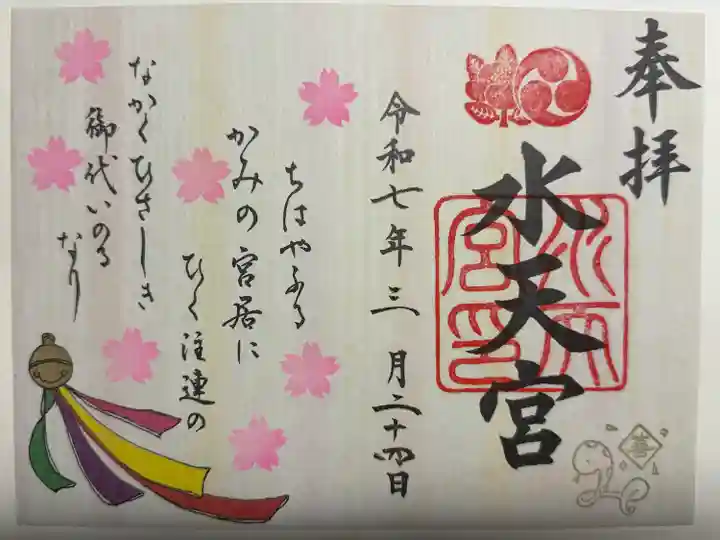 奉拝
水天宮
水天宮印
令和七年三月二十四日
ちはやふる
かみの宮居に
ひく注連の
なかくひさしき
御代いのる
なり